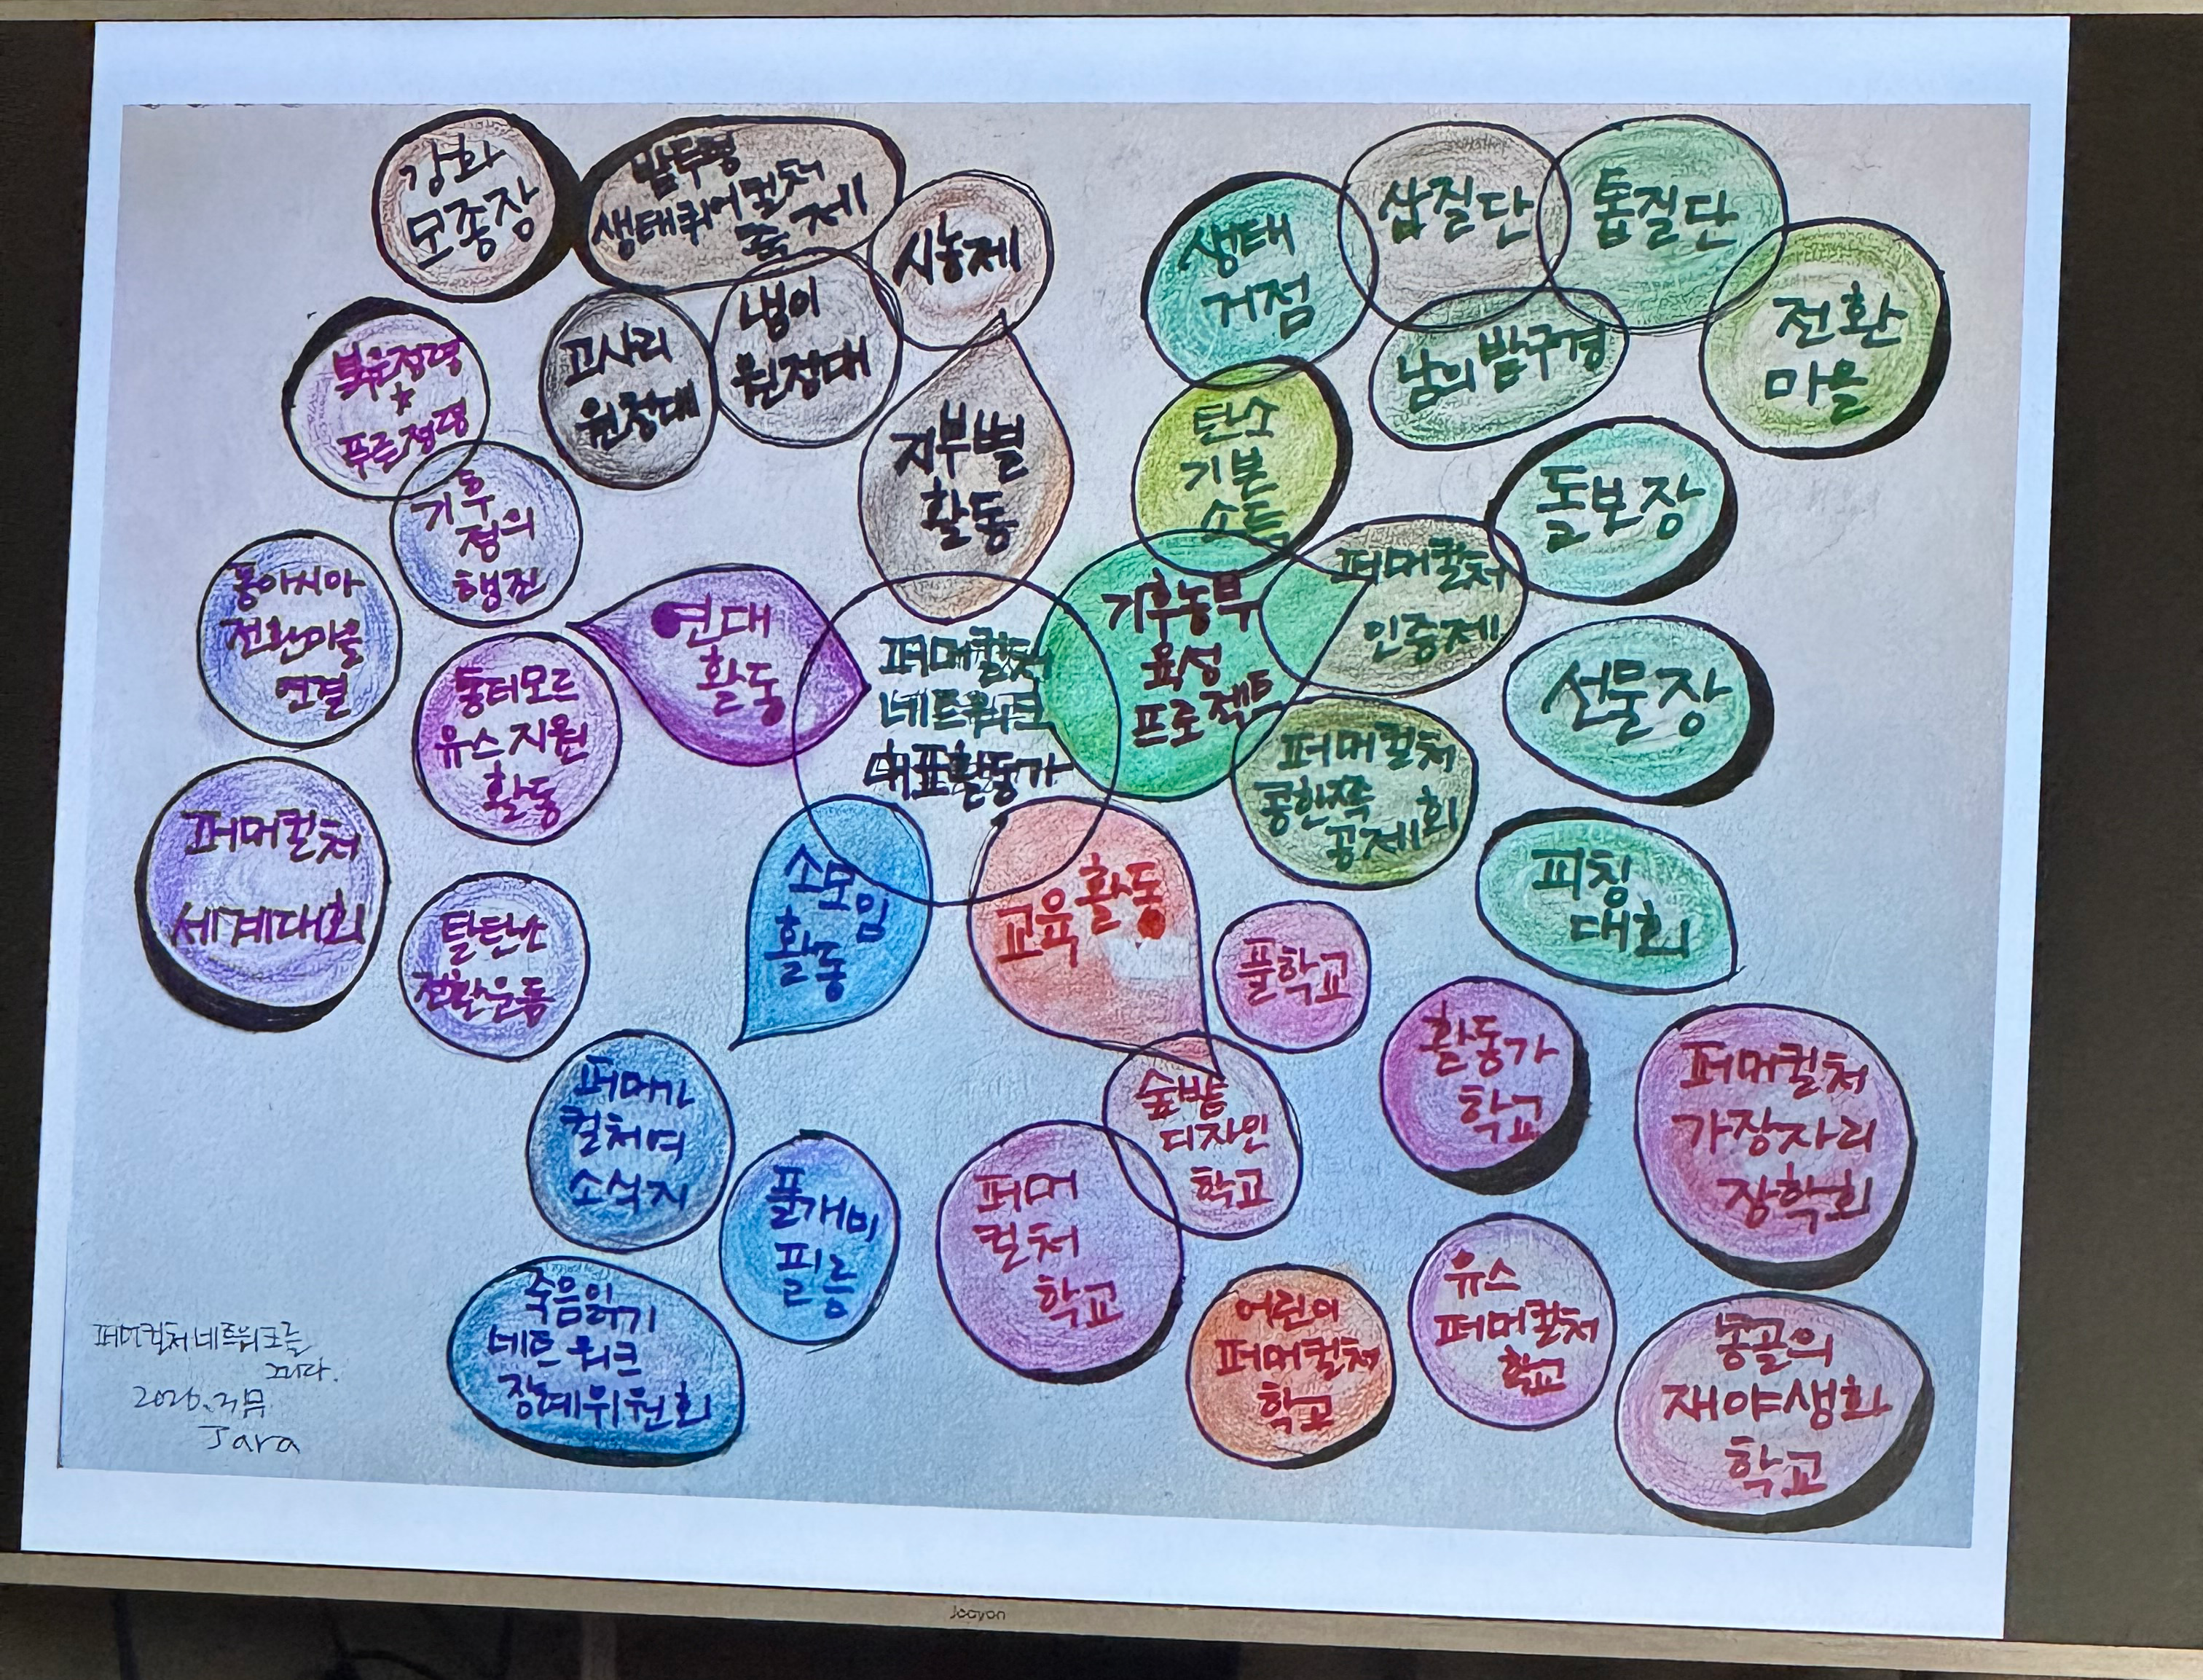 강화
모종장
밭두렁
생태퀴어컬처
축제
시농제
고사리
원정대
냉이
원정대
지부별
활동
생태
거점
삽질단
톱질단
전환
마을
남의 밭구경
탄소
기본
소득
돌보장
퍼머컬처
인증제
선물장
퍼머컬처
콩한쪽
공제회
피칭
대회
기후농부
육성
프로젝트
붉은점령
푸른점령
기후
정의
행진
동아시아
전환마을
연결
동티모르
유스지원
활동
연대
활동
퍼머컬처
세계대회
탈탄소
전환운동
퍼머컬처
네트워크
대표활동가
소모임
활동
퍼머가
컬처여
소식지
풀개비
필름
죽음읽기
네트워크
장례위원회
교육활동
풀학교
숲밭
디자인
학교
퍼머
컬처
학교
활동가
학교
퍼머컬처
가장자리
장학회
어린이
퍼머컬처
학교
유스
퍼머컬처
학교
몽골의
재야생화
학교
퍼머컬처네트워크를
Jara
Jooyon